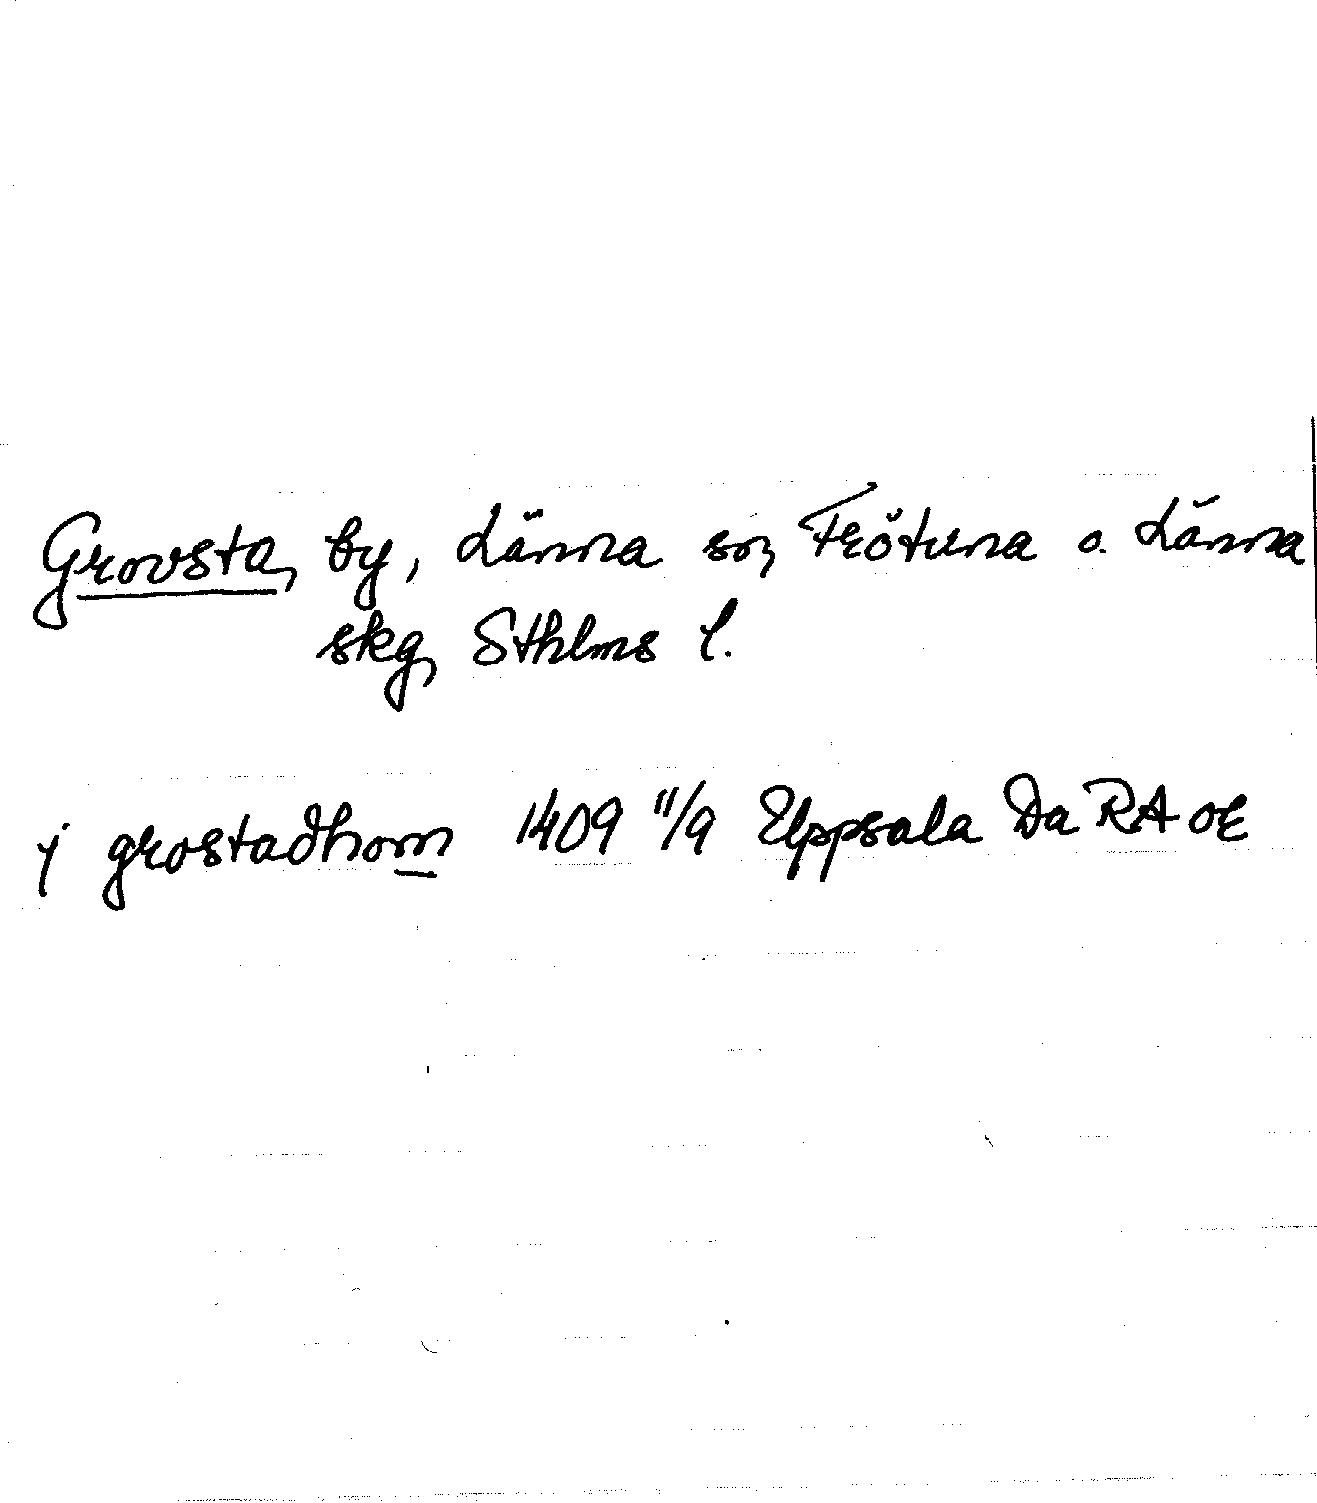 Grovsta, by, Länna sn, Frötuna o. Länna
skg, Sthlms l.
j grostadhom 1409 11/9 Uppsala Da RA or